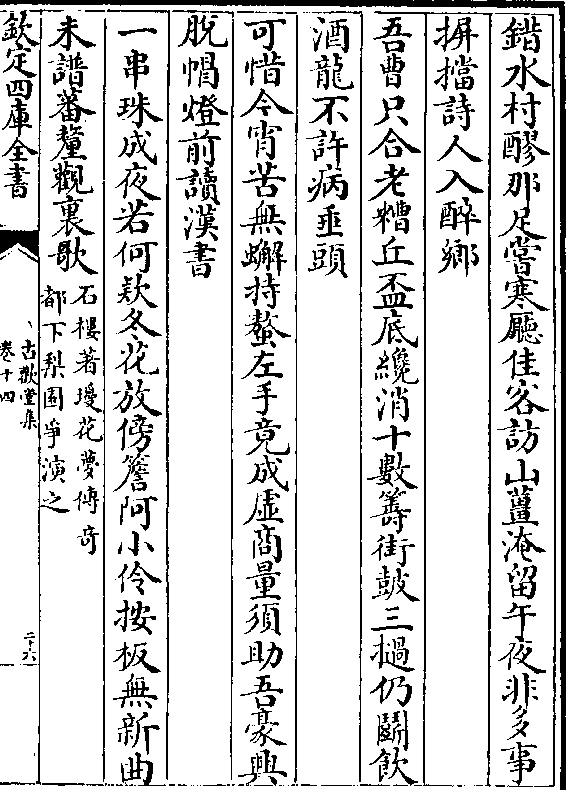 錯水村醪那足嘗寒廳佳客訪山薑淹留午夜非多事
摒擋詩人入醉鄉
吾曹只合老糟丘盃底纔消十數籌街鼓三撾仍鬭飲
酒龍不許病垂頭
可惜今宵苦無蠏持螯左手竟成虚商量須助吾豪興
脫㡌燈前讀漢書
一串珠成夜若何欵冬花放傍簷阿小伶按板無新曲
未譜蕃釐觀裏歌
石樓著瓊花夢傳奇
都下梨園爭演之
欽定四庫全書
古歡堂集
卷十四
二十六